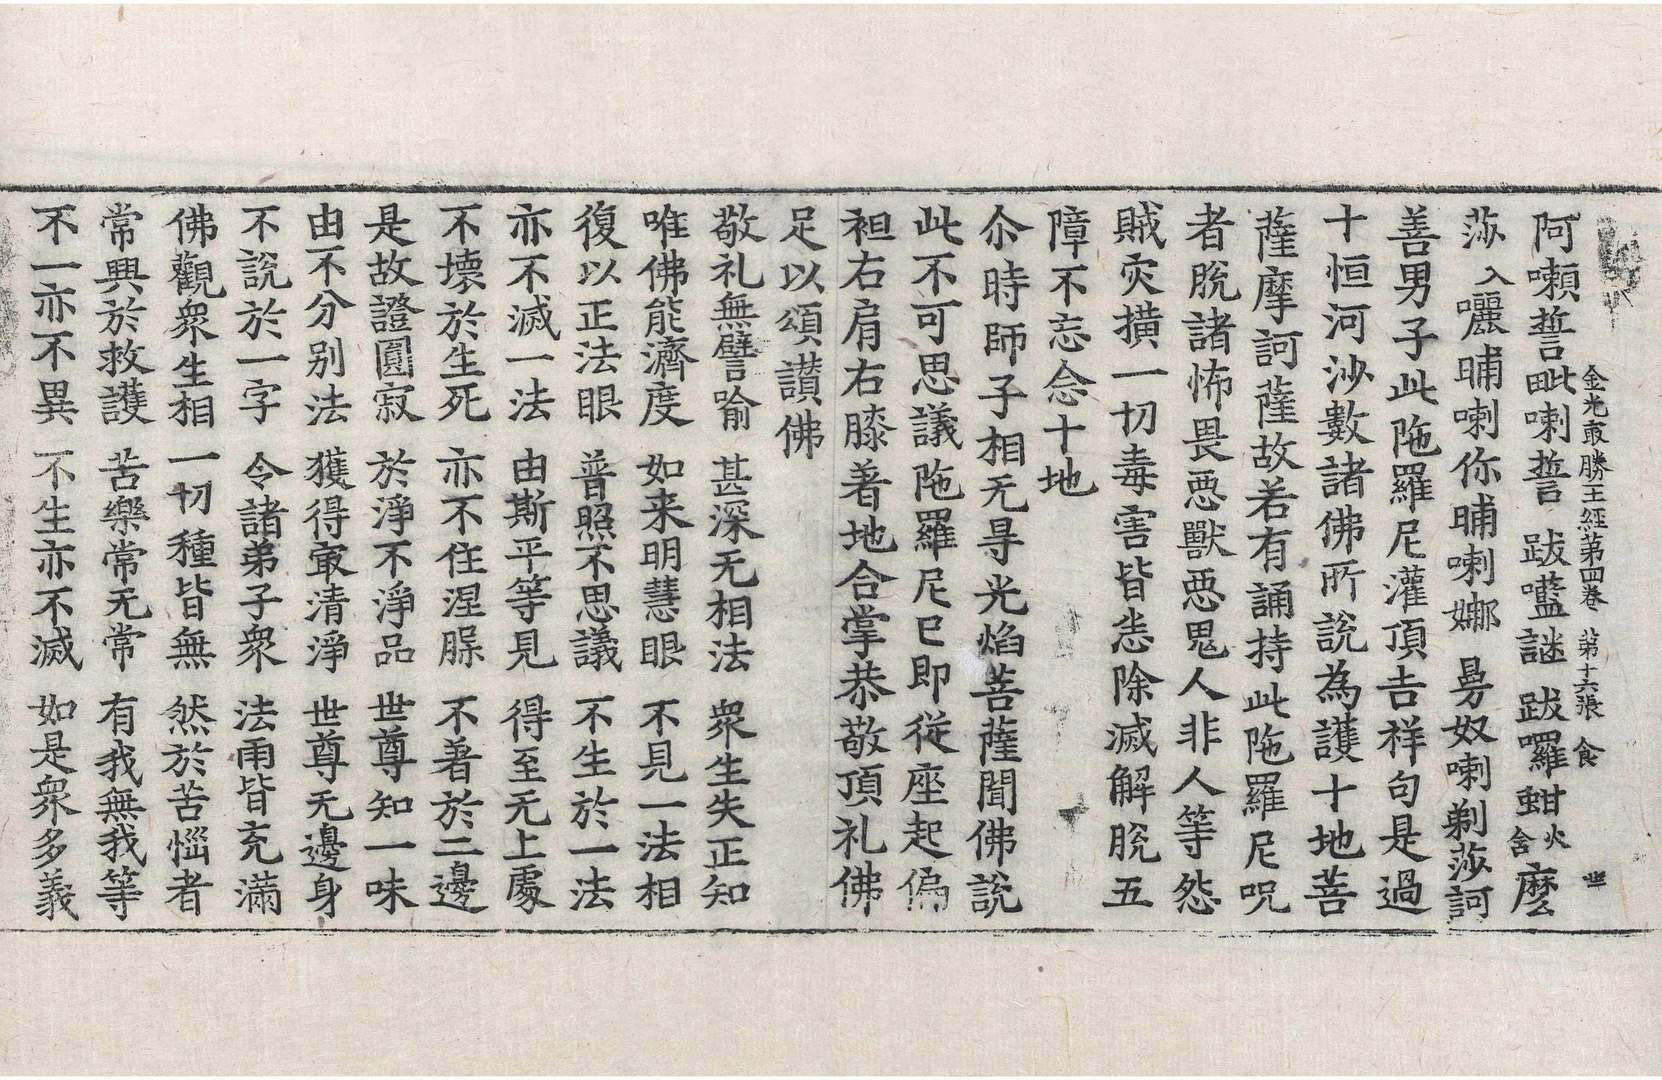 金光㝡勝王經第四卷　第十六張　食　世
阿嚩誓毗喇誓　跋㘕謎　跋囉蚶火含麼
莎入囇晡喇你晡喇娜　曼奴喇剃莎訶
善男子此陁羅尼灌頂吉祥句是過
十恒河沙數諸佛所說為護十地菩
薩摩訶薩故若有誦持此陁羅尼呪
者脫諸怖畏惡獸惡鬼人非人等怨
賊灾撗一切毒害皆悉除滅解脫五
障不忘念十地
尒時師子相无㝵光焰菩薩聞佛說
此不可思議陁羅尼已即從座起偏
袒右肩右膝著地合掌恭敬頂礼佛
足以頌讃佛
敬礼無譬喻　甚深无相法　衆生失正知
唯佛能濟度　如来明慧眼　不見一法相
復以正法眼　普照不思議　不生於一法
亦不滅一法　由斯平等見　得至无上處
不壞於生死　亦不住涅槃　不著於二邊
是故證圓寂　於淨不淨品　世尊知一味
由不分別法　獲得㝡清淨　世尊无邊身
不說於一字　令諸弟子衆　法雨皆充滿
佛觀衆生相　一切種皆無　然於苦惱者
常興於救護　苦樂常无常　有我無我等
不一亦不異　不生亦不滅　如是衆多義